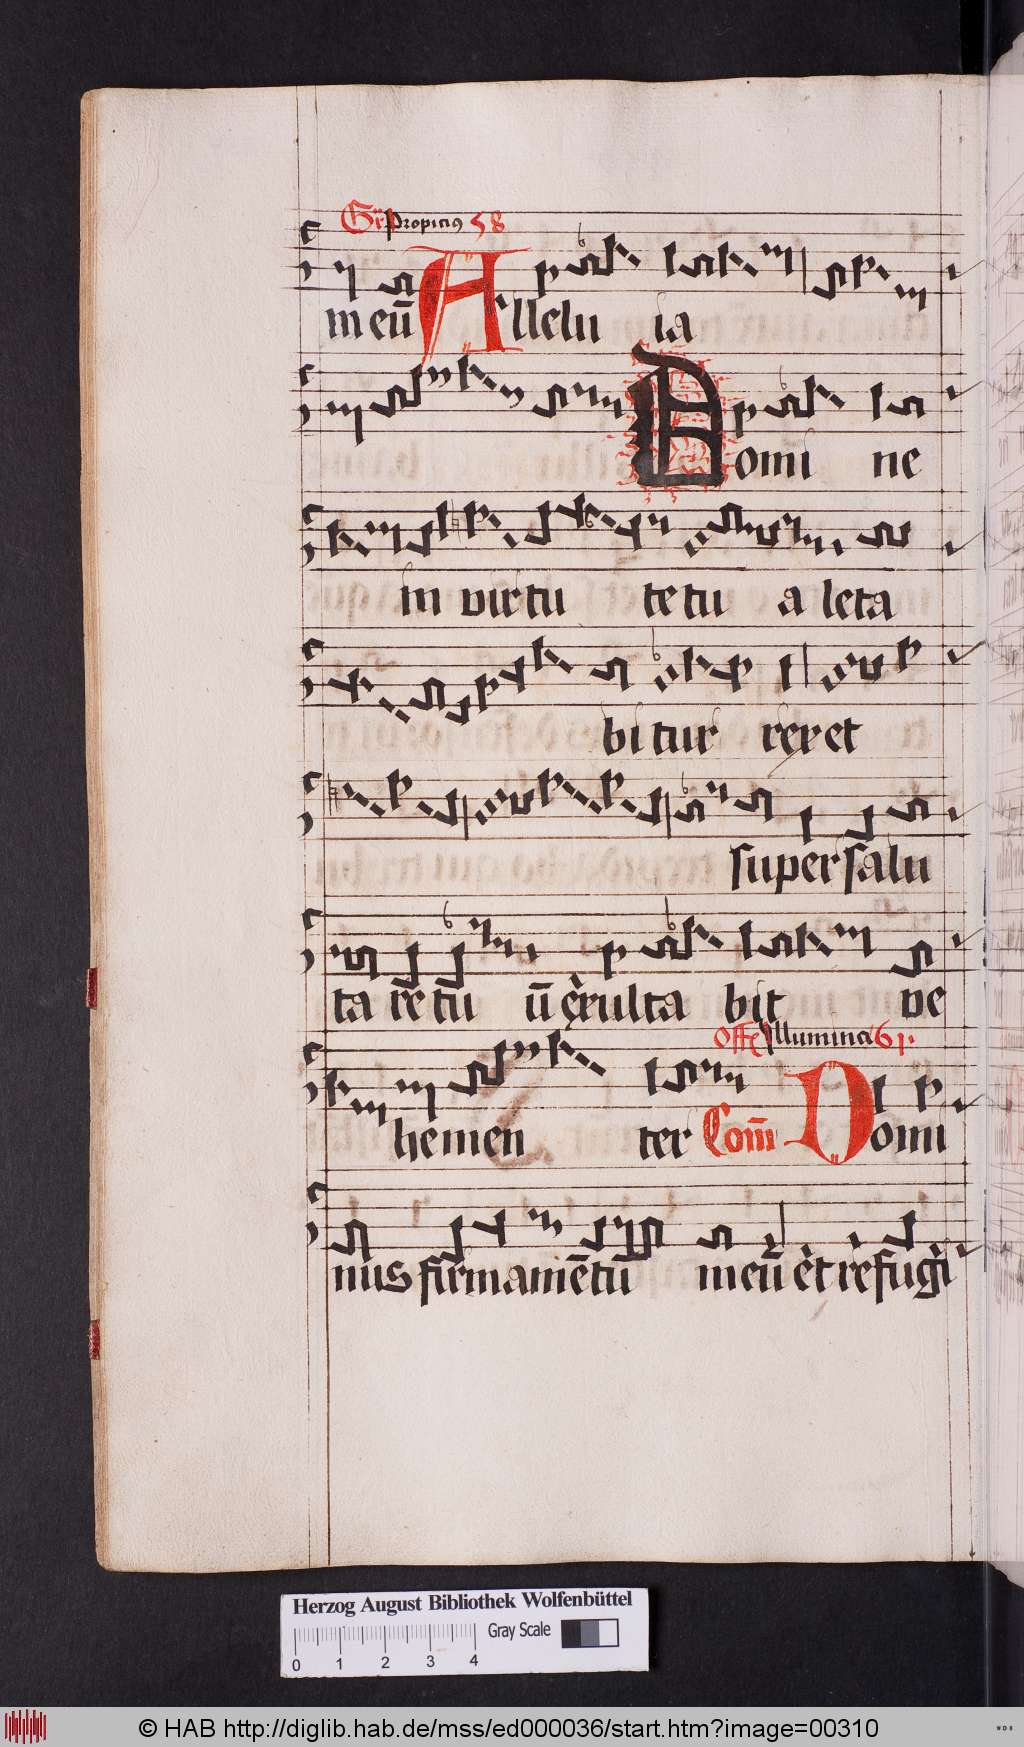 Gr Propicius 58
meū Allelu ia
Domi ne
in virtu te tu a leta
bi tur rex et
super salu
ta re tuū ū exulta bit ve
Off Illumina 61
hemen ter Com̄ Domi
nus firmamētū meū et refugi
Herzog August Bibliothek Wolfenbüttel
Gray Scale
0 1 2 3 4
© HAB http://diglib.hab.de/mss/ed000036/start.htm?image=00310